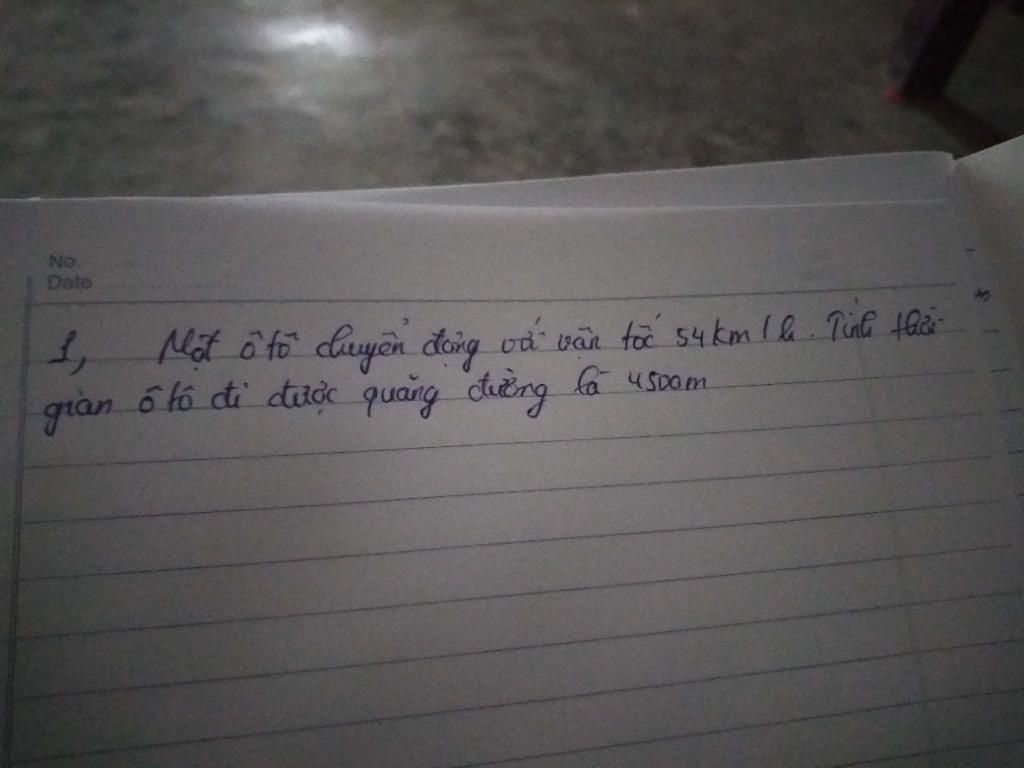 No.
Date
1, Một ô tô chuyển động với vận tốc 54km/h. Tính thời
gian ô tô đi được quãng đường là 4500m